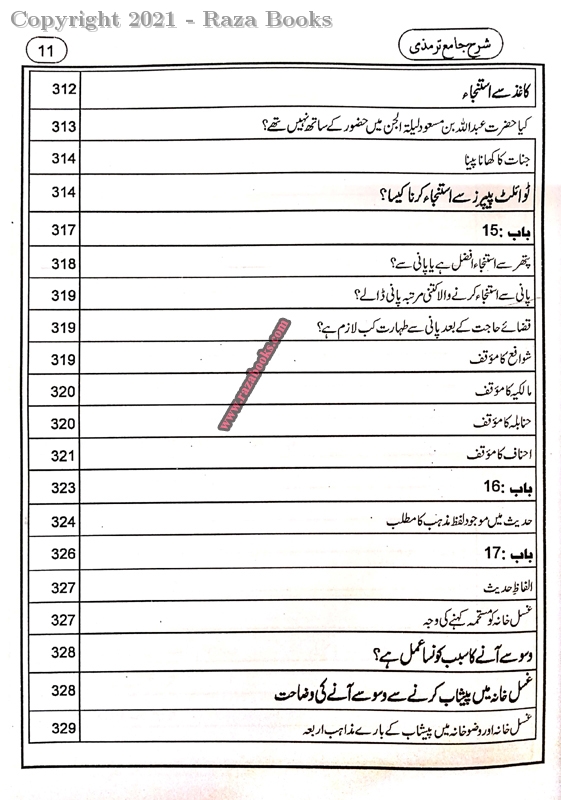 Copyright 2021 - Raza Books
شرح جامع ترمذی
11
کاغذ سے استنجاء 312
کیا حضرت عبداللہ بن مسعود لیلۃ الجن میں حضور کے ساتھ نہیں تھے؟ 313
جنات کا کھانا پینا 314
ٹوائلٹ پیپرز سے استنجاء کرنا کیسا؟ 314
باب :15 317
پتھر سے استنجاء افضل ہے یا پانی سے؟ 318
پانی سے استنجاء کرنے والا کتنی مرتبہ پانی ڈالے؟ 319
قضائے حاجت کے بعد پانی سے طہارت کب لازم ہے؟ 319
شوافع کا مؤقف 319
مالکیہ کا مؤقف 320
حنابلہ کا مؤقف 320
احناف کا مؤقف 321
باب :16 323
حدیث میں موجود لفظ مذہب کا مطلب 324
باب :17 326
الفاظِ حدیث 327
غسل خانہ کو مستحمہ کہنے کی وجہ 327
وسوسے آنے کا سبب کونسا عمل ہے؟ 328
غسل خانہ میں پیشاب کرنے سے وسوسے آنے کی وضاحت 328
غسل خانہ اور وضو خانہ میں پیشاب کے بارے مذاہب اربعہ 329
www.razabooks.com